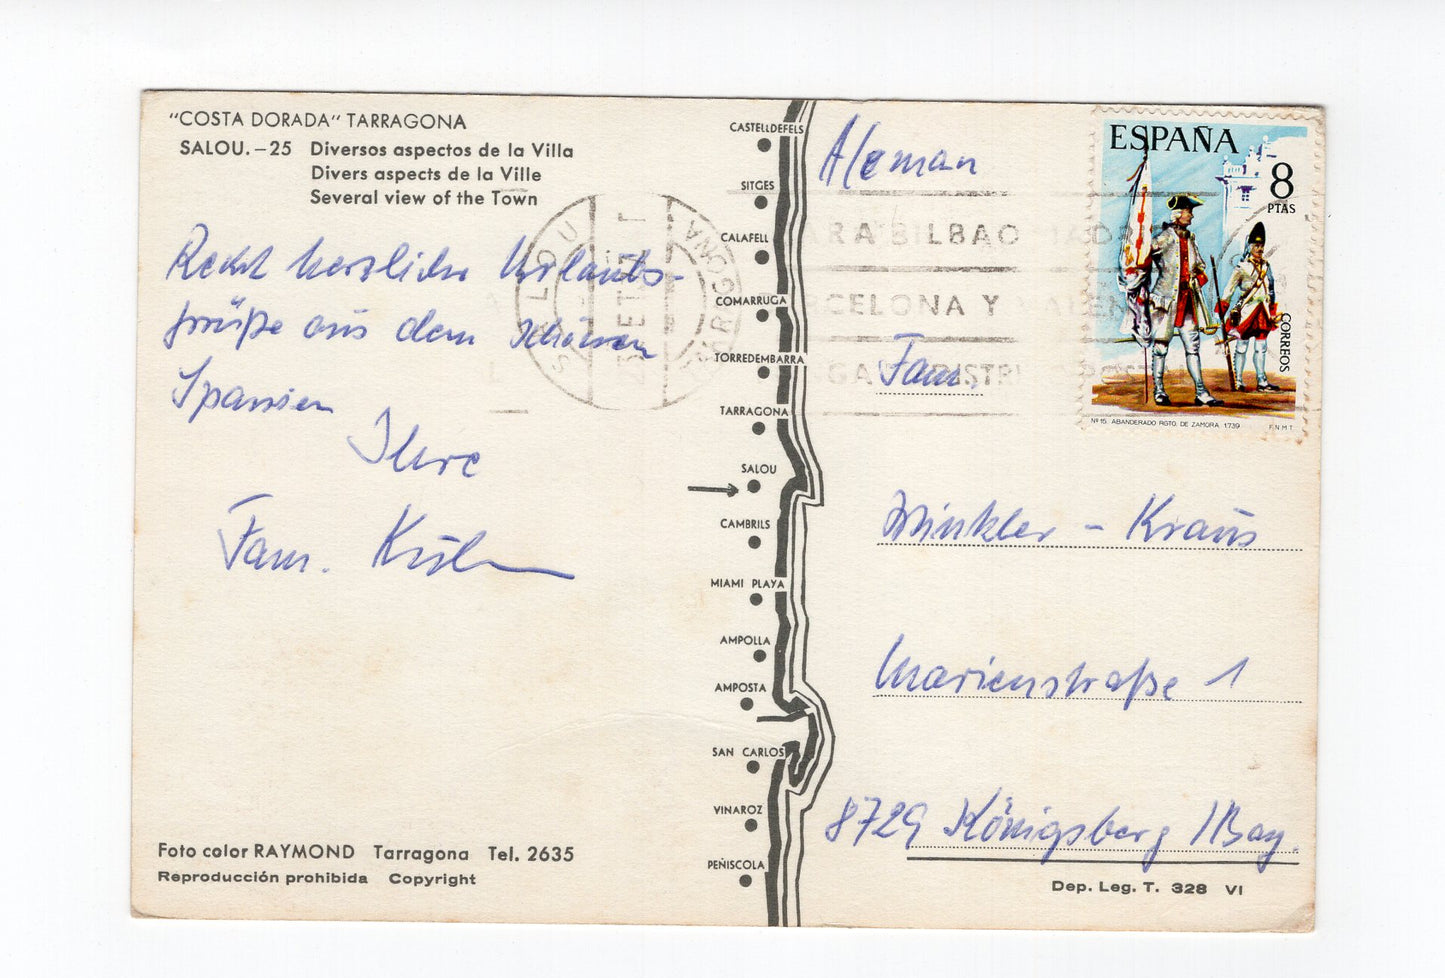 "COSTA DORADA" TARRAGONA
SALOU.-25 Diversos aspectos de la Villa
Divers aspects de la Ville
Several view of the Town
Recht herzliche Urlaubs-
grüße aus dem schönen
Spanien
Ihre
Fam.
Foto color RAYMOND Tarragona Tel. 2635
Reproducción prohibida Copyright
CASTELLDEFELS
SITGES
CALAFELL
COMARRUGA
TORREDEMBARRA
TARRAGONA
SALOU
CAMBRILS
MIAMI PLAYA
AMPOLLA
AMPOSTA
SAN CARLOS
VINAROZ
PEÑISCOLA
SALOU
TARRAGONA
BILBAO
BARCELONA Y
ESPAÑA
8
PTAS
CORREOS
Nº 15. ABANDERADO RGTO. DE ZAMORA 1739
F.N.M.T
Aleman
Fam.
Winkler - Kraus
Marienstraße 1
8729 Königsberg /Bay.
Dep. Leg. T. 328 VI